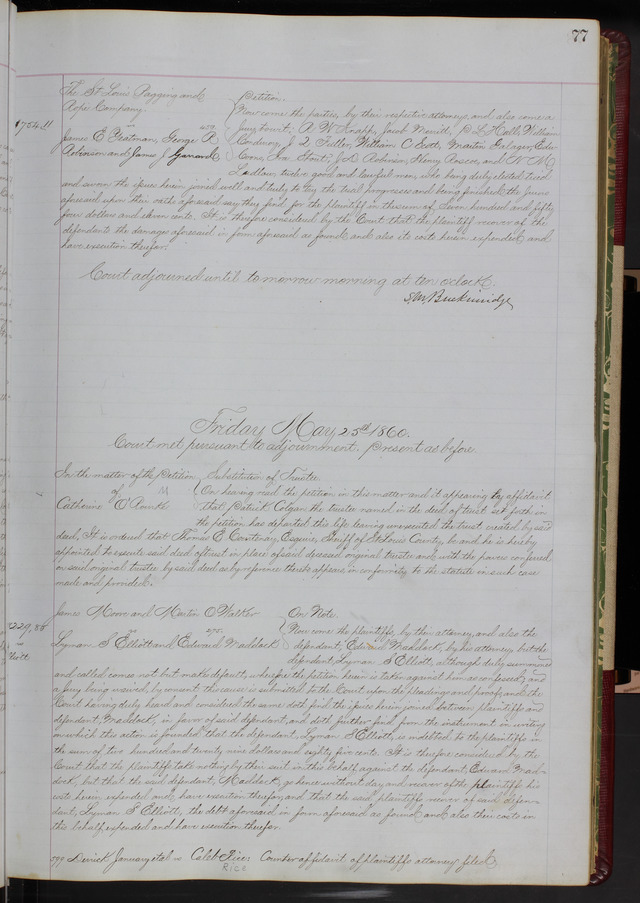 77
The St Louis Bagging and } Petition.
Rope Company. Now comes the parties, by their respective attorneys, and also come a
754.11 vs 459 jury to wit, A W Knapp, Jacob Merrill, P L Hall, William
James E Yeatman, George R Corduroy, J Q Fuller, William C Scott, Martin
Robinson and James J } Henry and N M
Ludlow, twelve good and lawful men, who being duly elected tried
and sworn the issues herein joined well and truly to try the trial progresses and being finished the jurors
aforesaid upon their oaths aforesaid say they find for the plaintiff in the sum of seven hundred and fifty
four dollars and eleven cents. It is therefore considered by the Court that the plaintiff recover of the
defendants the damages aforesaid in form aforesaid as found and also its costs herein expended and
have execution therefor.
Court adjourned until to morrow morning at ten oclock.
S M Breckinridge
Friday May 25th 1860.
Court met pursuant to adjournment. Present as before
In the matter of the Petition } Substitution of Trustee.
of On hearing read the petition in this matter and it appearing by affidavit
Catherine that Patrick Colgan the trustee named in the deed of trust set forth in
the petition has departed this life leaving unexecuted the trust created by said
deed, It is ordered that Thomas E Courtenay, Esquire, Sheriff of St Louis County, be and he is hereby
appointed to execute said deed of trust in place of said deceased original trustee and with the powers conferred
on said original trustee by said deed as by reference thereto appears in conformity to the statute in such case
made and provided.
James Moore and Martin O Walker } On Note.
229.85 vs 275. Now come the plaintiffs, by their attorney, and also the
Lyman S Elliott and Edward Maddock } defendant, Edward Maddock, by his attorney, but the
defendant, Lyman S Elliott, although duly summoned
and called comes not but makes default, wherefore the petition herein is taken against him as confessed; and
a jury being waived, by consent, the cause is submitted to the Court upon the pleadings and proof, and the
Court having duly heard and considered the same doth find the issues herein joined between plaintiffs and
defendant, Maddock, in favor of said defendant, and doth further find from the instrument in writing
on which this action is founded that the defendant, Lyman S Elliott, is indebted to the plaintiffs in
the sum of two hundred and twenty nine dollars and eighty five cents. It is therefore considered by the
Court that the plaintiffs take nothing by their suit in this behalf against the defendant, Edward Mad-
dock, but that the said defendant, Maddock, go hence without day and recover of the plaintiffs his
costs herein expended and have execution therefor, and that the said plaintiffs recover of said defen-
dant, Lyman S Elliott, the debt aforesaid in form aforesaid as found and also their costs in
this behalf expended and have execution therefor.
799 Derrick January et al vs Caleb Rice: Counter affidavit of plaintiffs attorney filed
Rice